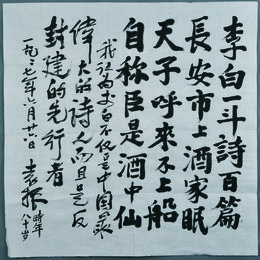 李白一斗詩百篇
長安市上酒家眠
天子呼來不上船
自称臣是酒中仙
我認為李白不仅是中国最
偉大的诗人而且是反
封建的先行者
一九八七年六月廿八日
袁振
時年
八十岁